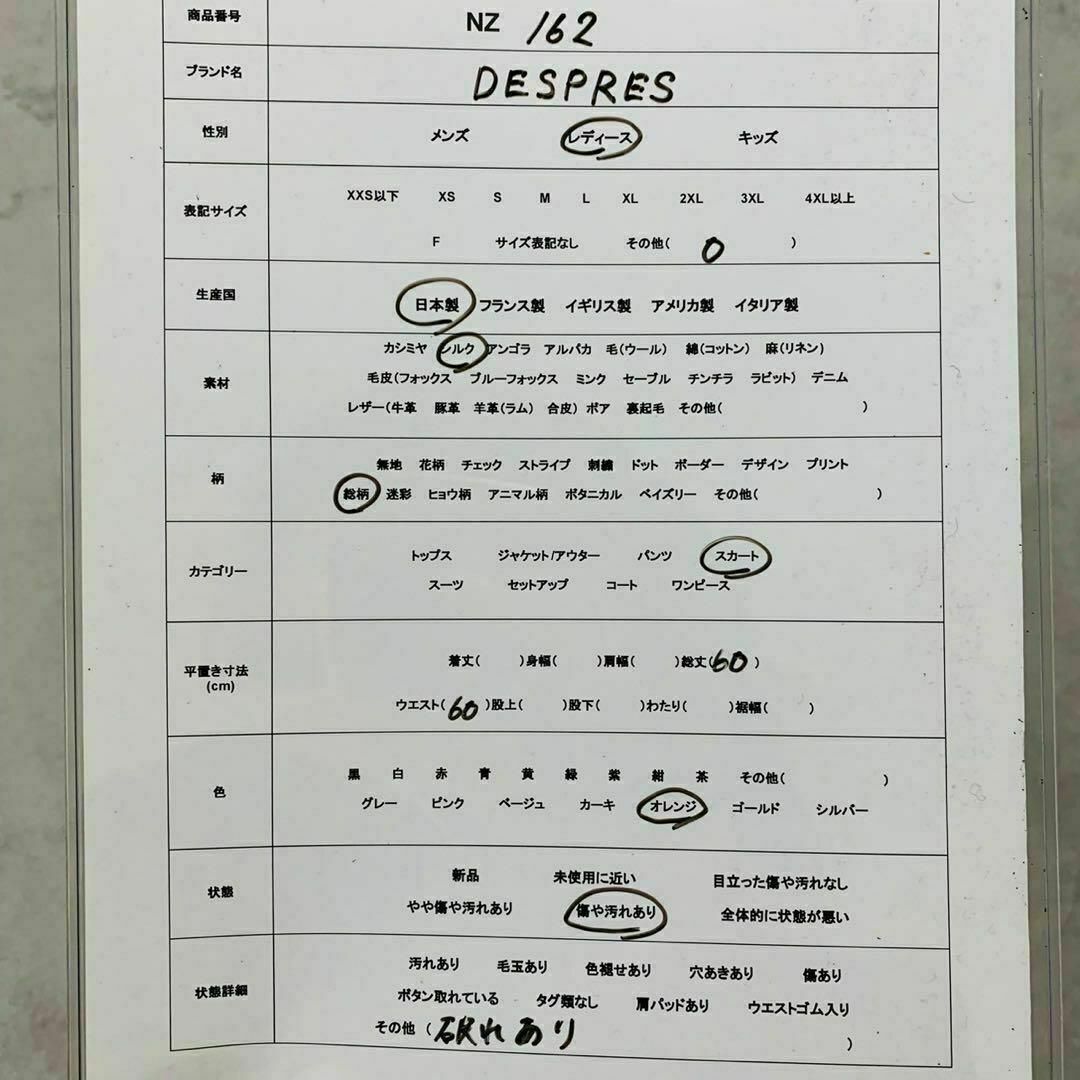 商品番号 NZ 162
ブランド名 DESPRES
性別 メンズ レディース キッズ
XXS以下 XS S M L XL 2XL 3XL 4XL以上
表記サイズ
F サイズ表記なし その他( 0 )
生産国 日本製 フランス製 イギリス製 アメリカ製 イタリア製
カシミヤ シルク アンゴラ アルパカ 毛(ウール) 綿(コットン) 麻(リネン)
素材 毛皮(フォックス ブルーフォックス ミンク セーブル チンチラ ラビット) デニム
レザー(牛革 豚革 羊革(ラム) 合皮) ボア 裏起毛 その他( )
無地 花柄 チェック ストライプ 刺繍 ドット ボーダー デザイン プリント
柄
総柄 迷彩 ヒョウ柄 アニマル柄 ボタニカル ペイズリー その他( )
トップス ジャケット/アウター パンツ スカート
カテゴリー
スーツ セットアップ コート ワンピース
着丈( )身幅( )肩幅( )総丈(60 )
平置き寸法
(cm)
ウエスト(60 )股上( )股下( )わたり( )裾幅( )
黒 白 赤 青 黄 緑 紫 紺 茶 その他( )
色
グレー ピンク ベージュ カーキ オレンジ ゴールド シルバー
新品 未使用に近い 目立った傷や汚れなし
状態
やや傷や汚れあり 傷や汚れあり 全体的に状態が悪い
汚れあり 毛玉あり 色褪せあり 穴あきあり 傷あり
状態詳細 ボタン取れている タグ類なし 肩パッドあり ウエストゴム入り
その他 ( 破れあり )